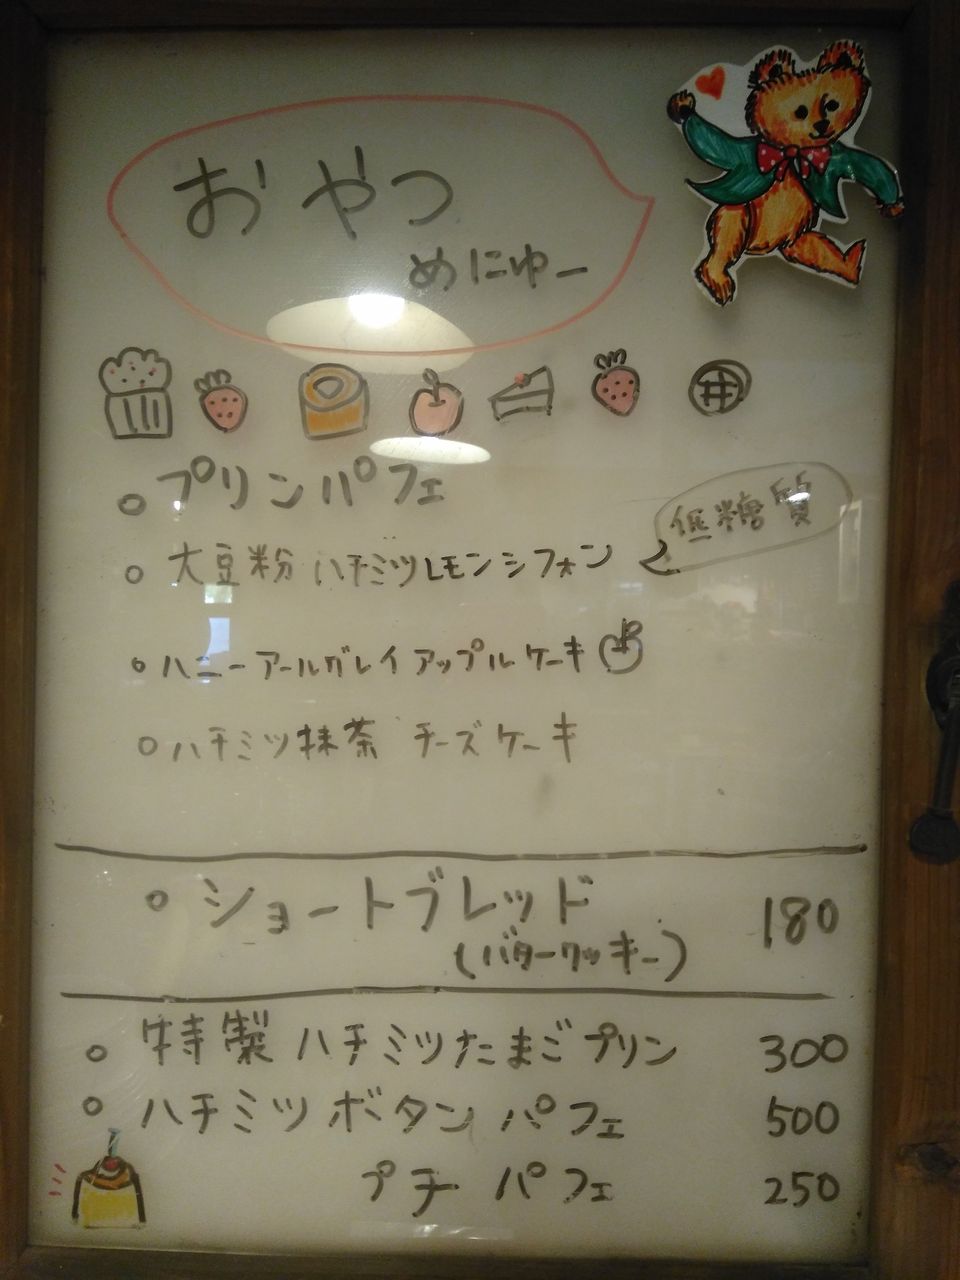 おやつ
めにゅー
プリンパフェ
大豆粉 ハチミツレモンシフォン
低糖質
ハニーアールグレイアップルケーキ
ハチミツ抹茶 チーズケーキ
ショートブレッド 180
(バタークッキー)
特製ハチミツたまごプリン 300
ハチミツボタン パフェ 500
プチ パフェ 250